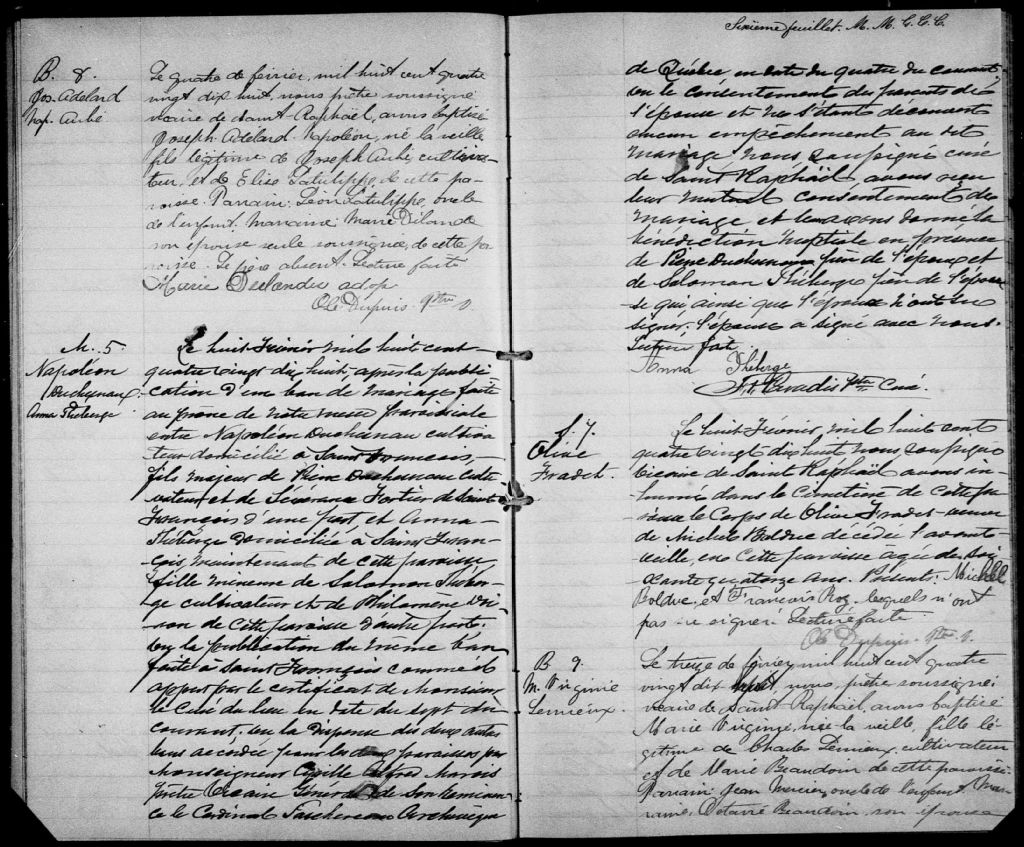 B. 8.
Jos. Adelard
Nap. Aubé
Le quatre de février, mil huit cent quatre
vingt dix huit, nous prêtre soussigné
vicaire de Saint-Raphaël, avons baptisé
Joseph-Adelard-Napoléon, né la veille
fils légitime de Joseph Aubé, cultiva-
teur, et de Elise Latulippe, de cette pa-
roisse. Parrain: Léon Latulippe, oncle
de l'enfant. Marraine Marie
son épouse seule soussignée, de cette pa-
roisse. Le père absent. Lecture faite
Marie
Dupuis. Ptre v.
M. 5.
Napoléon
Duchesneau
Anna Théberge
Le huit Février mil huit cent
quatre vingt dix huit, après la publi
cation d'un ban de mariage faite
au prone de notre messe paroissiale
entre Napoléon Duchesneau cultiva
teur domicilié à Saint François,
fils majeur de Pierre Duchesneau culti
vateur et de Séverance Fortier de Saint
François d'une part, et Anna
Théberge domiciliée à Saint Fran-
çois, maintenant de cette paroisse
fille mineure de Salomon Théber
ge cultivateur et de Philomène
de cette paroisse d'autre part.
vu la publication du même ban
faite à Saint François comme il
appert par le certificat de Monsieur
le Curé du lieu en date du sept du
courant, vu la dispense des deux autres
bans accordée pour les deux paroisses par
Monseigneur Cyrille Alfred Marois
prêtre Vicaire Général de Son Eminen
ce le Cardinal Taschereau Archevêque
Sixième feuillet. M. M. C. C. C.
de Québec, en date du quatre du courant,
vu le consentement des parents de
l'épouse et ne s'étant découvert
aucun empêchement au dit
mariage, Nous soussigné curé
de Saint Raphaël, avons reçu
leur mutuel consentement de
mariage et leur avons donné la
bénédiction nuptiale en présence
de Pierre Duchesneau père de l'époux et
de Salomon Théberge père de l'épou
se qui, ainsi que l'époux n'ont su
signer. l'épouse a signé avec nous.
Lecture faite.
Anna Théberge
Paradis Ptre Curé.
S. 7.
Olive
Fradet.
Le huit Février, mil huit cent
quatre vingt dix huit nous soussigné
Vicaire de Saint Raphaël avons in-
humé dans le Cimetière de cette pa-
roisse le Corps de Olive Fradet veuve
de Michel Bolduc décédée l'avant
veille, en cette paroisse agée de soi
xante quatorze ans. Présents: Michel
Bolduc, et François Roy lesquels n'ont
pas su signer. Lecture faite
Dupuis. Ptre v.
B 9.
M. Virginie
Lemieux.
Le treize de février, mil huit cent quatre
vingt dix huit, nous, prêtre soussigné
vicaire de Saint Raphaël, avons baptisé
Marie Virginie, née la veille, fille lé-
gitime de Charles Lemieux, cultivateur
et de Marie Beaudoin de cette paroisse
Parrain Jean Mercier, oncle de l'enfant, Mar-
raine, Octavie Beaudoin, son épouse